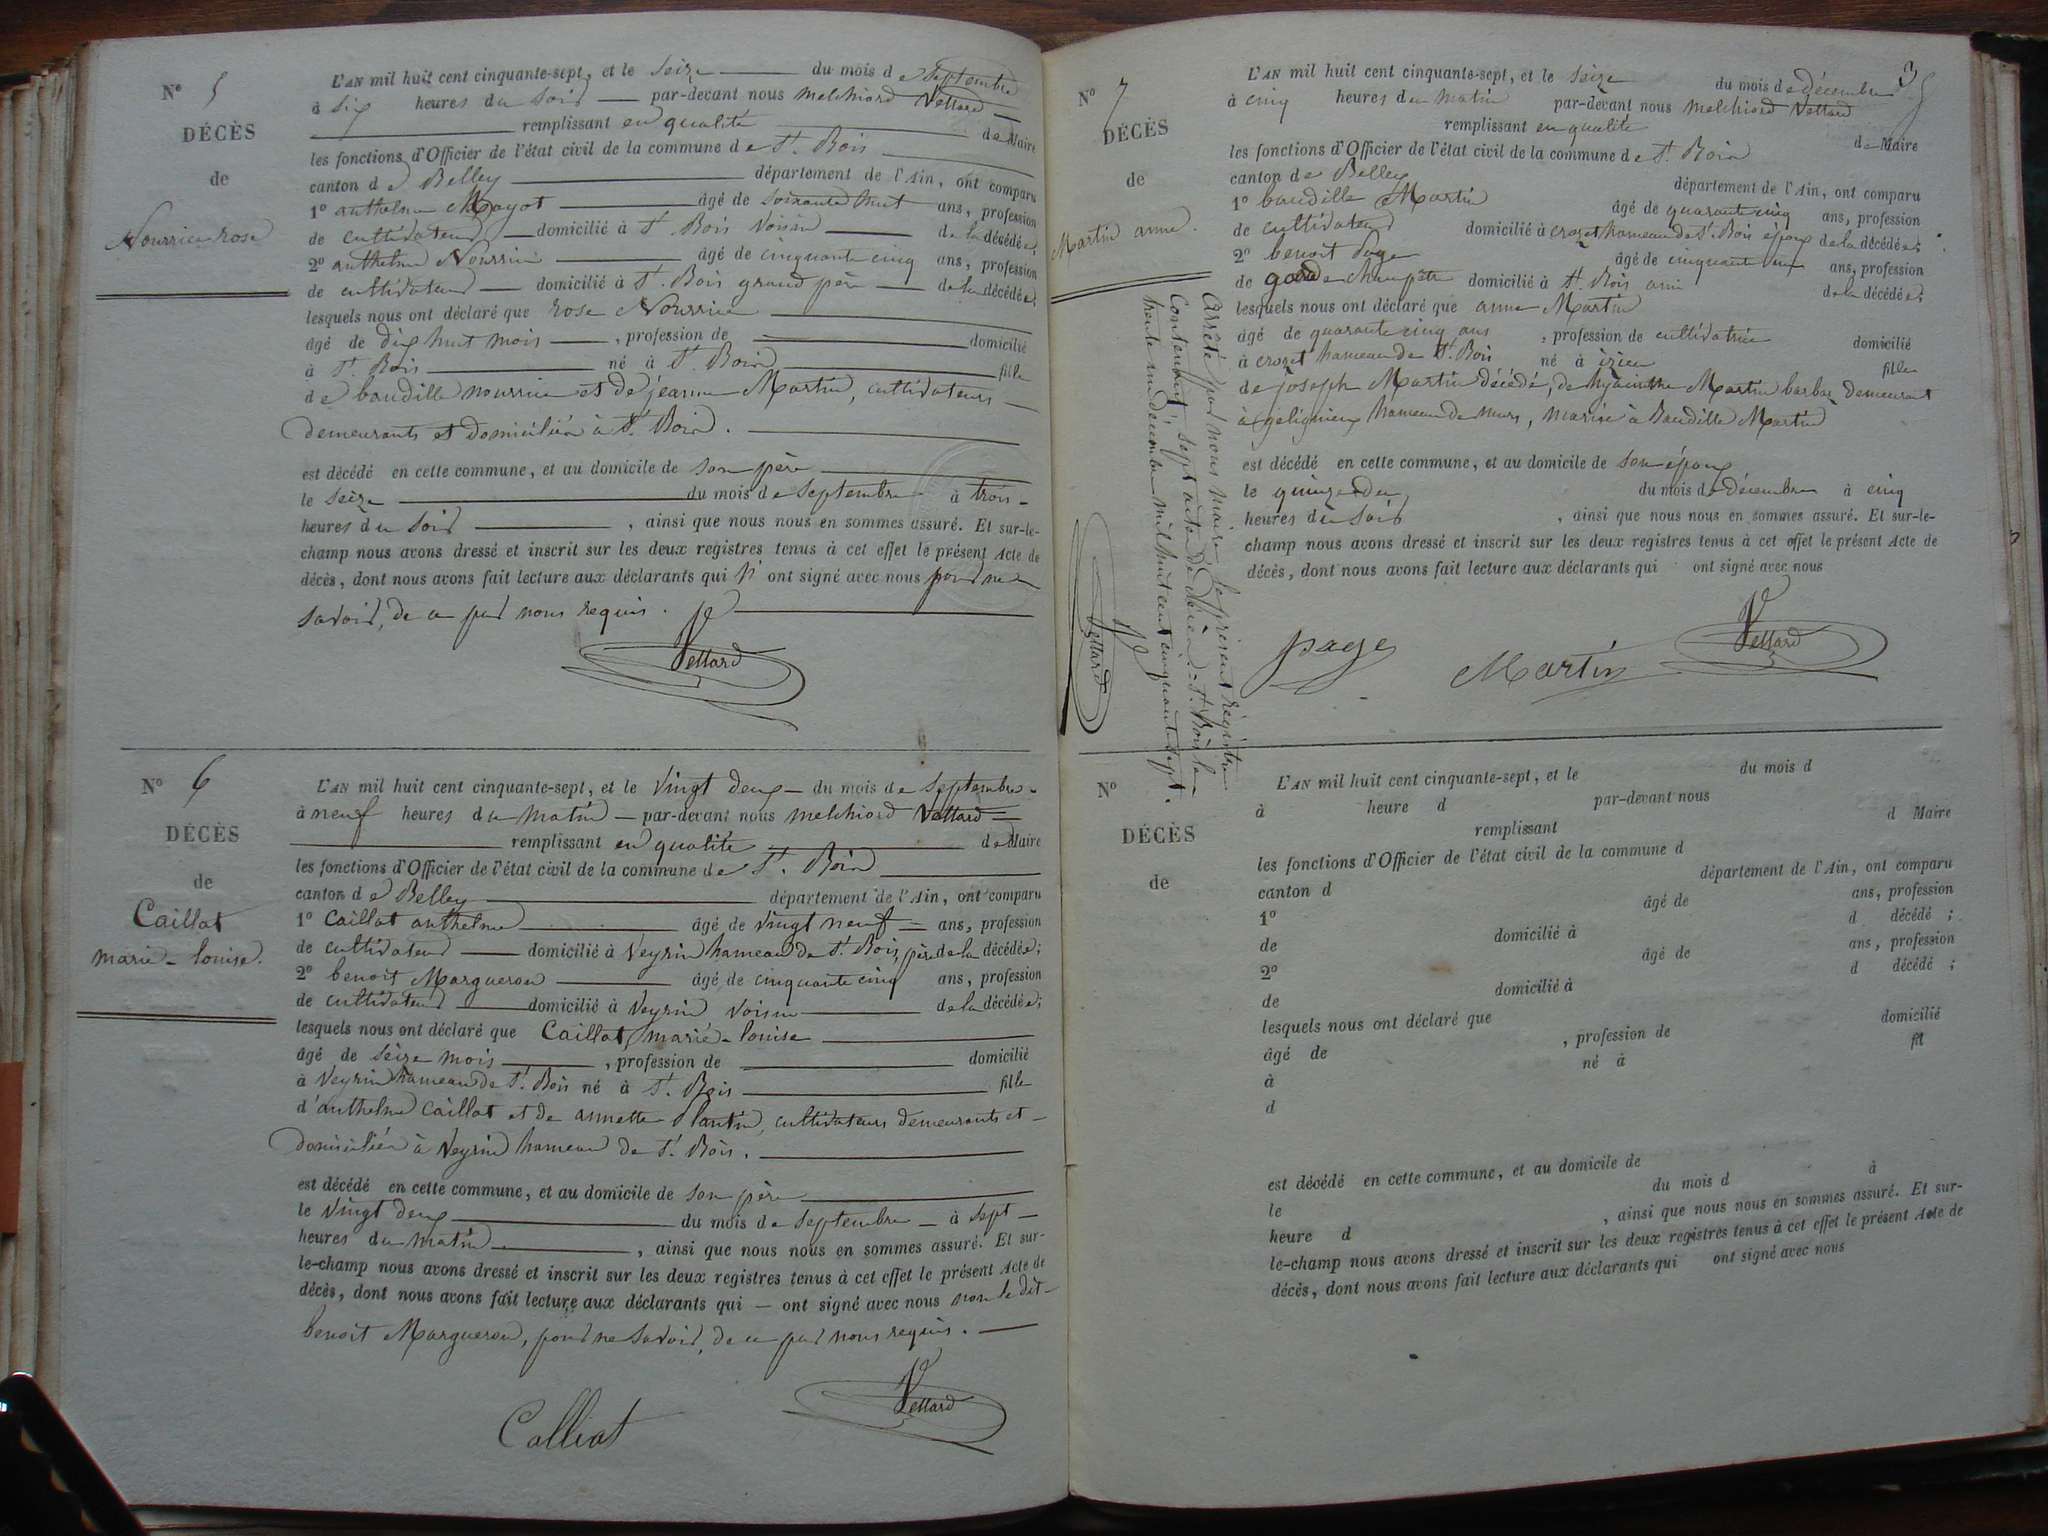 N° 5
DÉCÈS
de
Nourrice rose
L'AN mil huit cent cinquante-sept, et le seize du mois de septembre
à six heures du soir par-devant nous melchiord Vettard
remplissant en qualité de Maire
les fonctions d'Officier de l'état civil de la commune de St. Bois
canton de Belley département de l'Ain, ont comparu
1° anthelme Mayot âgé de soixante huit ans, profession
de cultivateur domicilié à St. Bois voisin de la décédée;
2° anthelme Nourrice âgé de cinquante cinq ans, profession
de cultivateur domicilié à St. Bois grand père de la décédée;
lesquels nous ont déclaré que rose Nourrice
âgé de dix huit mois, profession de domicilié
à St. Bois né à St. Bois fille
de baudille nourrice et de jeanne Martin, cultivateurs
demeurants et domiciliés à St. Bois.
est décédé en cette commune, et au domicile de son père
le seize du mois de septembre à trois
heures du soir, ainsi que nous nous en sommes assuré. Et sur-le-
champ nous avons dressé et inscrit sur les deux registres tenus à cet effet le présent Acte de
décès, dont nous avons fait lecture aux déclarants qui n' ont signé avec nous pour ne
savoir, de ce par nous requis.
Vettard
N° 6
DÉCÈS
de
Caillat
marie-louise.
L'AN mil huit cent cinquante-sept, et le vingt deux du mois de septembre
à neuf heures du matin par-devant nous melchiord Vettard
remplissant en qualité de Maire
les fonctions d'Officier de l'état civil de la commune de St. Bois
canton de Belley département de l'Ain, ont comparu
1° Caillat anthelme âgé de vingt neuf ans, profession
de cultivateur domicilié à Veyrin hameau de St. Bois, père de la décédée;
2° benoit Margueron âgé de cinquante cinq ans, profession
de cultivateur domicilié à Veyrin voisin de la décédée;
lesquels nous ont déclaré que Caillat, marie-louise
âgé de seize mois, profession de domicilié
à Veyrin hameau de St. Bois né à St. Bois fille
d'anthelme Caillat et de annette Plantin, cultivateurs demeurants et
domiciliés à Veyrin hameau de St. Bois.
est décédé en cette commune, et au domicile de son père
le vingt deux du mois de septembre à sept
heures du matin, ainsi que nous nous en sommes assuré. Et sur-
le-champ nous avons dressé et inscrit sur les deux registres tenus à cet effet le présent Acte de
décès, dont nous avons fait lecture aux déclarants qui ont signé avec nous non le dit
benoit Margueron, pour ne savoir, de ce par nous requis.
Calliat Vettard
35
N° 7
DÉCÈS
de
Martin anne.
L'AN mil huit cent cinquante-sept, et le seize du mois de décembre
à cinq heures du matin par-devant nous melchiord Vettard
remplissant en qualité de Maire
les fonctions d'Officier de l'état civil de la commune de St. Bois
canton de Belley département de l'Ain, ont comparu
1° baudille Martin âgé de quarante cinq ans, profession
de cultivateur domicilié à crozet hameau de St. Bois époux de la décédée;
2° benoit Page âgé de cinquante ans, profession
de garde champêtre domicilié à St. Bois ami de la décédée;
lesquels nous ont déclaré que anne Martin
âgé de quarante cinq ans, profession de cultivatrice domicilié
à crozet hameau de St. Bois né à izieu fille
de joseph Martin décédé, de hyacinthe Martin barbar demeurant
à gelignieux hameau de murs, mariée à Baudille Martin
est décédé en cette commune, et au domicile de son époux
le quinze du mois de décembre à cinq
heures du soir, ainsi que nous nous en sommes assuré. Et sur-le-
champ nous avons dressé et inscrit sur les deux registres tenus à cet effet le présent Acte de
décès, dont nous avons fait lecture aux déclarants qui ont signé avec nous
page Martin Vettard
Arrêté par nous maire le présent régistre
Contenant sept acte de décès. St. Bois le
trente un décembre mil huit cent cinquante sept.
Vettard
N°
DÉCÈS
de
L'AN mil huit cent cinquante-sept, et le du mois d
à heure d par-devant nous
remplissant d Maire
les fonctions d'Officier de l'état civil de la commune d
canton d département de l'Ain, ont comparu
1° âgé de ans, profession
de domicilié à d décédé;
2° âgé de ans, profession
de domicilié à d décédé;
lesquels nous ont déclaré que
âgé de , profession de domicilié
à né à fil
d
est décédé en cette commune, et au domicile de
le du mois d à
heure d , ainsi que nous nous en sommes assuré. Et sur-
le-champ nous avons dressé et inscrit sur les deux registres tenus à cet effet le présent Acte de
décès, dont nous avons fait lecture aux déclarants qui ont signé avec nous